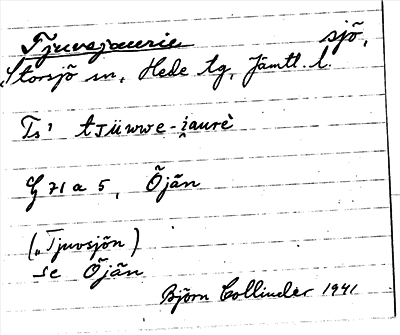 Tjuvsjaurie sjö,
Storsjö sn, Hede tg, Jämtl. l.
Ts1 tjüwwe-i̯aurè
G 71 a 5, Öjän
(„Tjuvsjön)
se Öjän
Björn Collinder 1941